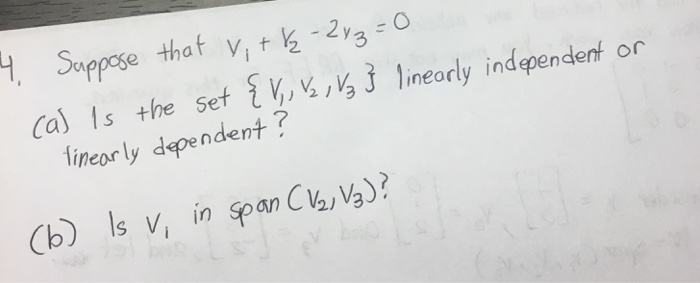 4. Suppose that v₁ + v₂ - 2v₃ = 0
(a) Is the set {v₁, v₂, v₃} linearly independent or
linearly dependent?
(b) Is v₁ in span (v₂, v₃)?